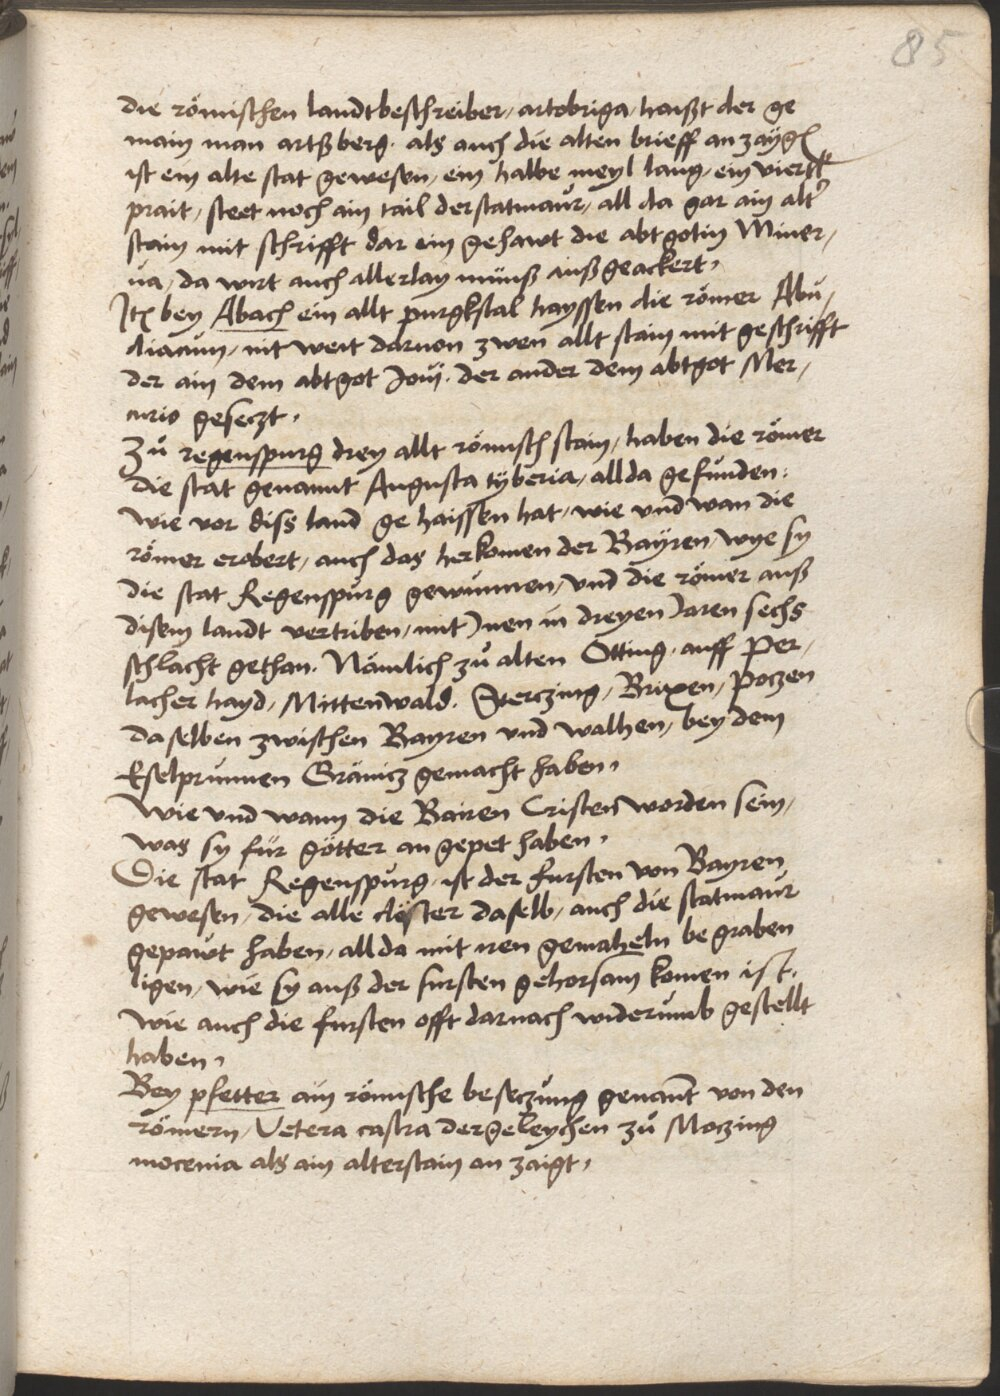 85
die römischen landtbeschreiber, artobriga, haißt der ge
main man artßberg. als auch die alten brieff an zaÿgē
ist ein alte stat gewesen, ein halbe meyl lang, ein viertl
prait, steet noch ain tail der statmaur, all da gar ain alt̓
stain mit schrifft dar ein gehawt die abtgotin Miner,
ua, da wirt auch allerlay münß außgeackert,
Itē bey Abach ein allt purgkstal hayssen die römer Abu,
diacum, nit weit daruon zwen allt stain mit geschrifft
der ain dem abtgot Joui. der ander dem abtgot Mer,
curio geseczt,
Zů regenspurg drey allt römisch stain, haben die römer
die stat genannt Augusta tÿberia, allda gefunden:
wie vor diss land ge haissen hat, wie vnd wan die
römer erobert, auch das herkomen der Baÿren, wye sy
die stat Regenspurg gewunnen, vnd die römer auß
disem landt vertriben, mit Jnen in dreyen Jaren sechs
schlacht gethan. Nämlich zů alten Otting. auff Per,
lacher hayd, Mittenwald. Sterczing, Brixen, Poczen
daselben zwischen Bayren vnd walhen, bey dem
Eselprunnen Gränicz gemacht haben,
Wie vnd wann die Bairen Cristen worden sein,
was sy für götter an gepet haben,
Die stat Regenspurg, ist der fursten von Bayren
gewesen, die alle clöster daselb, auch die statmaur
gepawt haben, allda mit iren gemaheln be graben
ligen, wie sy auß der fursten gehorsam komen ist,
wie auch die fursten offt darnach widerumb gestellt
haben,
Bey pfetter ain römische beseczung genant̄ von den
römern, Vetera castra dergeleychen zů Moczing
mocenia als ain alterstain an zaigt,